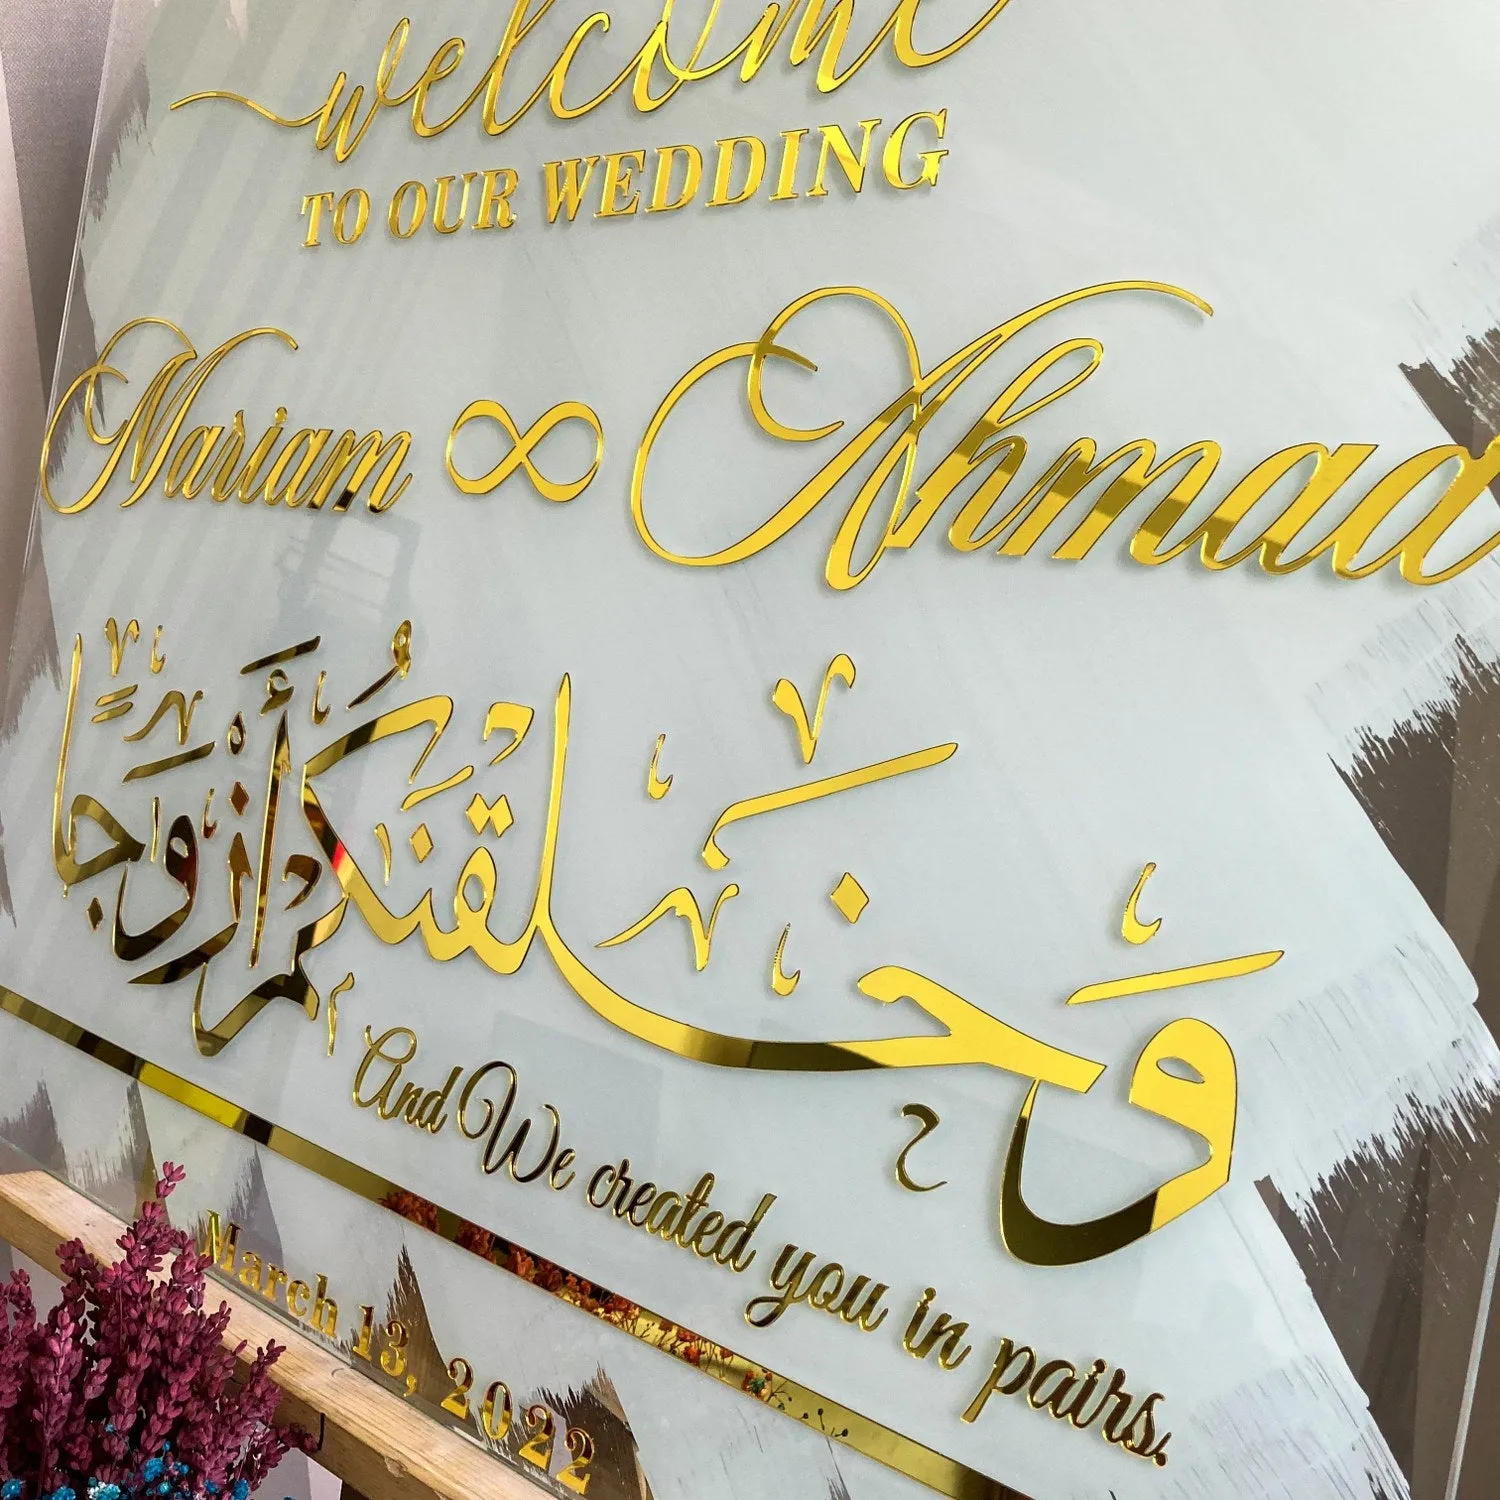 welcome
TO OUR WEDDING
Mariam ∞ Ahmad
وَخَلَقْنَٰكُمْ أَزْوَٰجًا
And We created you in pairs.
March 13, 2022